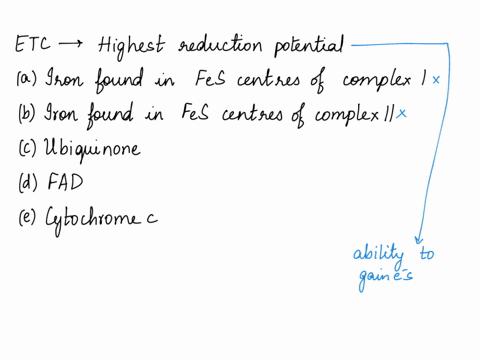 ETC → Highest reduction potential
(a) Iron found in FeS centres of complex I x
(b) Iron found in FeS centres of complex II x
(c) Ubiquinone
(d) FAD
(e) Cytochrome c
ability to
gain e-s